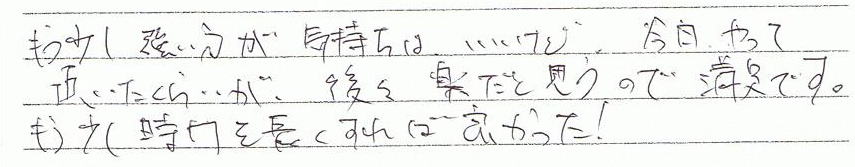 もう少し強い方が気持ちは、いいけど、今日やって
頂いたくらいが、後々楽だと思うので満足です。
もう少し時間を長くすれば良かった！